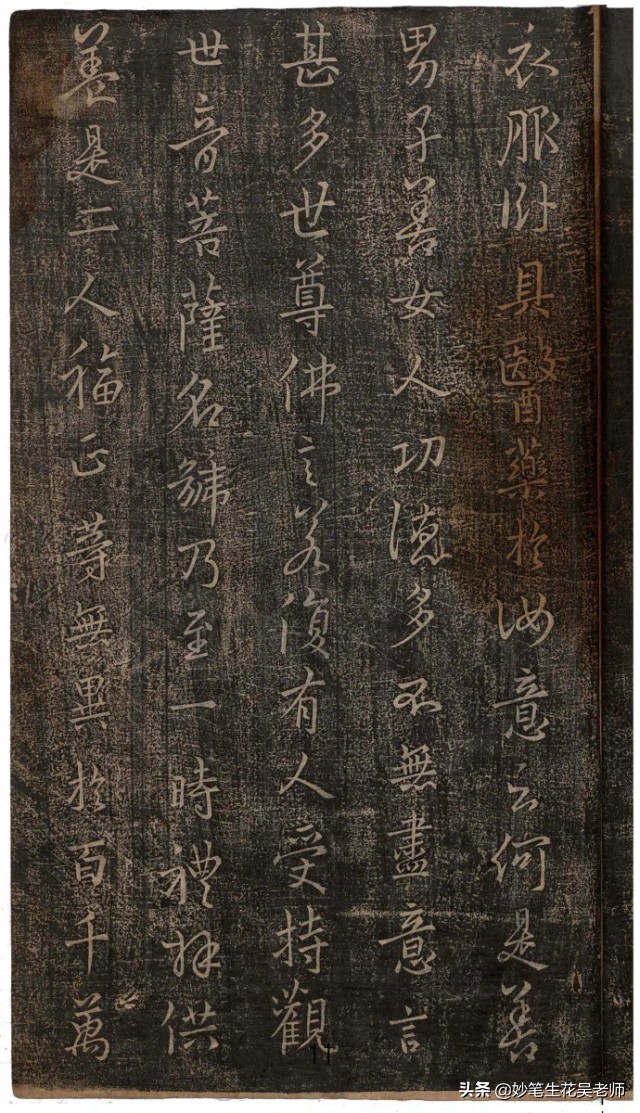 衣服卧具醫藥於汝意云何是善
男子善女人功德多不無盡意言
甚多世尊佛言若復有人受持觀
世音菩薩名號乃至一時禮拜供
養是二人福正等無異於百千萬
11
头条 @妙笔生花吴老师